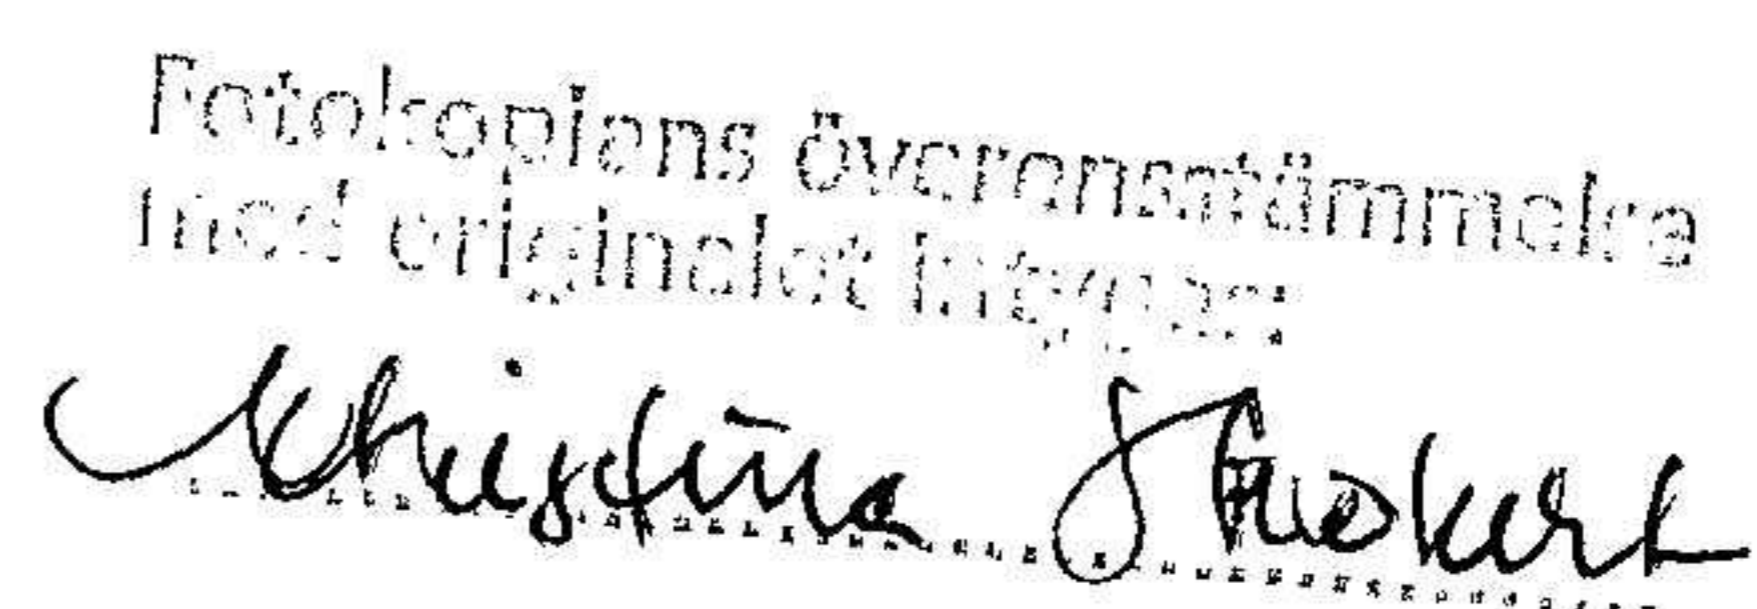 Fotokopians överensstämmelse
med originalet intygas:
Christina